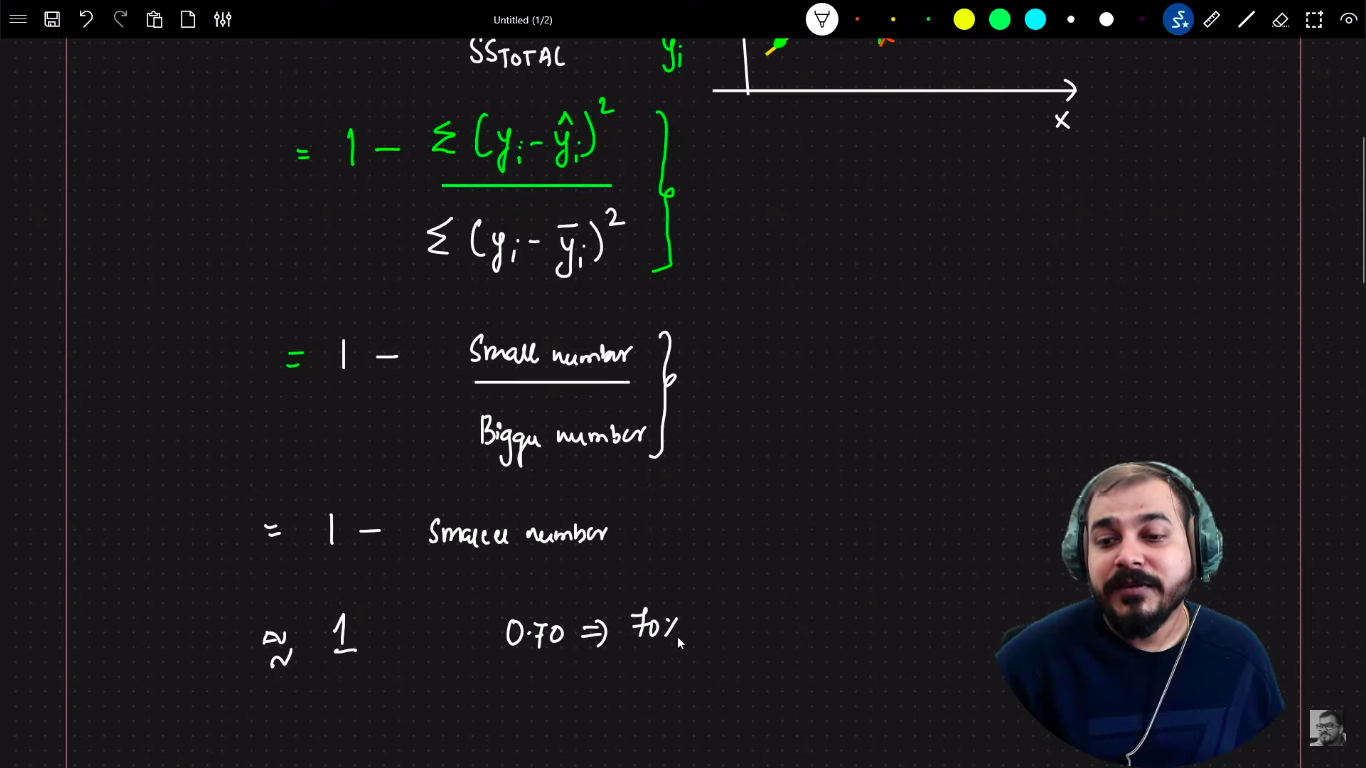 Untitled (1/2)
SSTOTAL yi
x
= 1 - Σ (yi - ŷi)²
Σ (yi - ȳi)²
= 1 - Small number
Biggu number
= 1 - Smaller number
≈ 1 0.70 ⇒ 70%